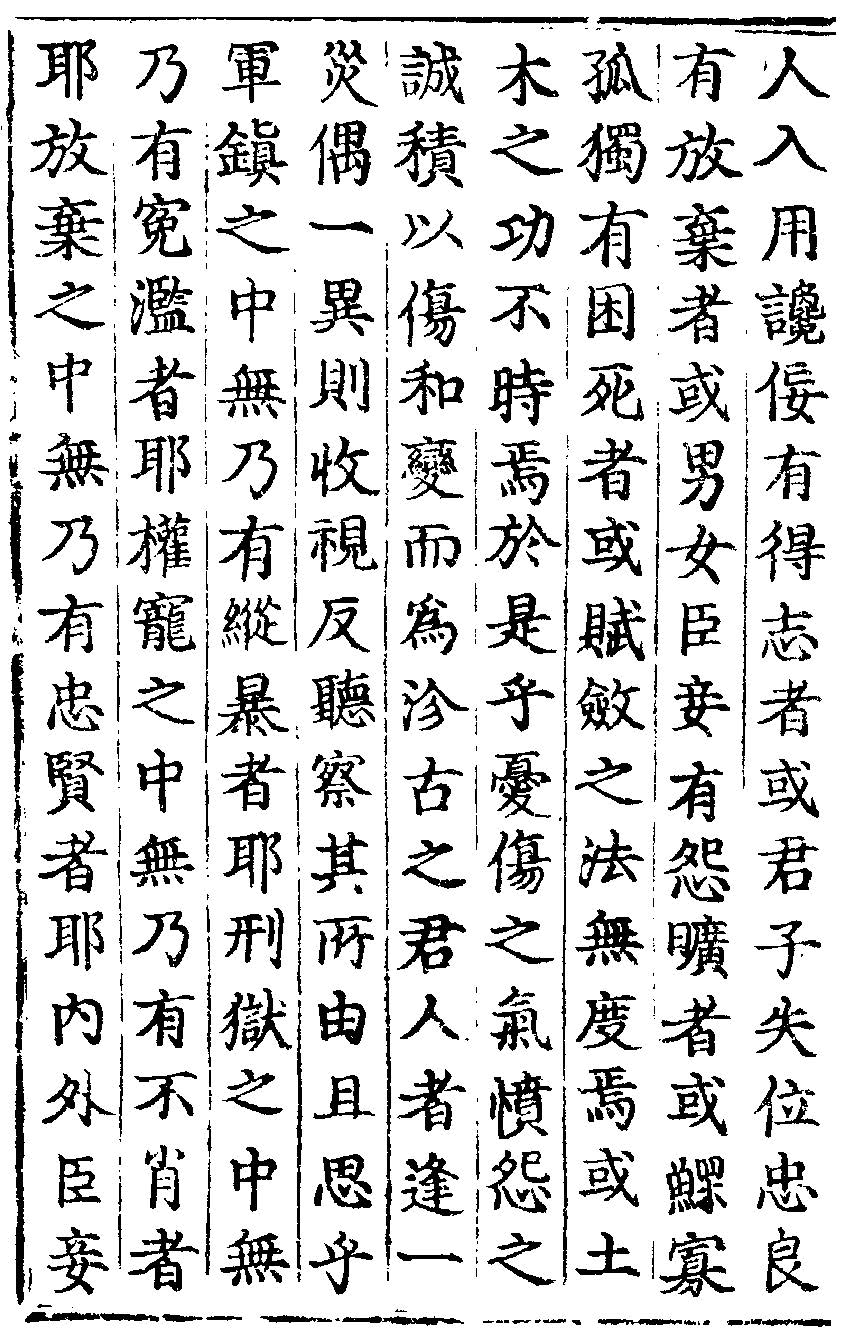 人入用讒佞有得志者或君子失位忠良
有放棄者或男女臣妾有怨曠者或鰥寡
孤獨有困死者或賦斂之法無度焉或土
木之功不時焉於是乎憂傷之氣憤怨之
誠積以傷和變而爲沴古之君人者逢一
災偶一異則收視反聽察其所由且思乎
軍鎮之中無乃有縱暴者耶刑獄之中無
乃有寃濫者耶權寵之中無乃有不肖者
耶放棄之中無乃有忠賢者耶内外臣妾